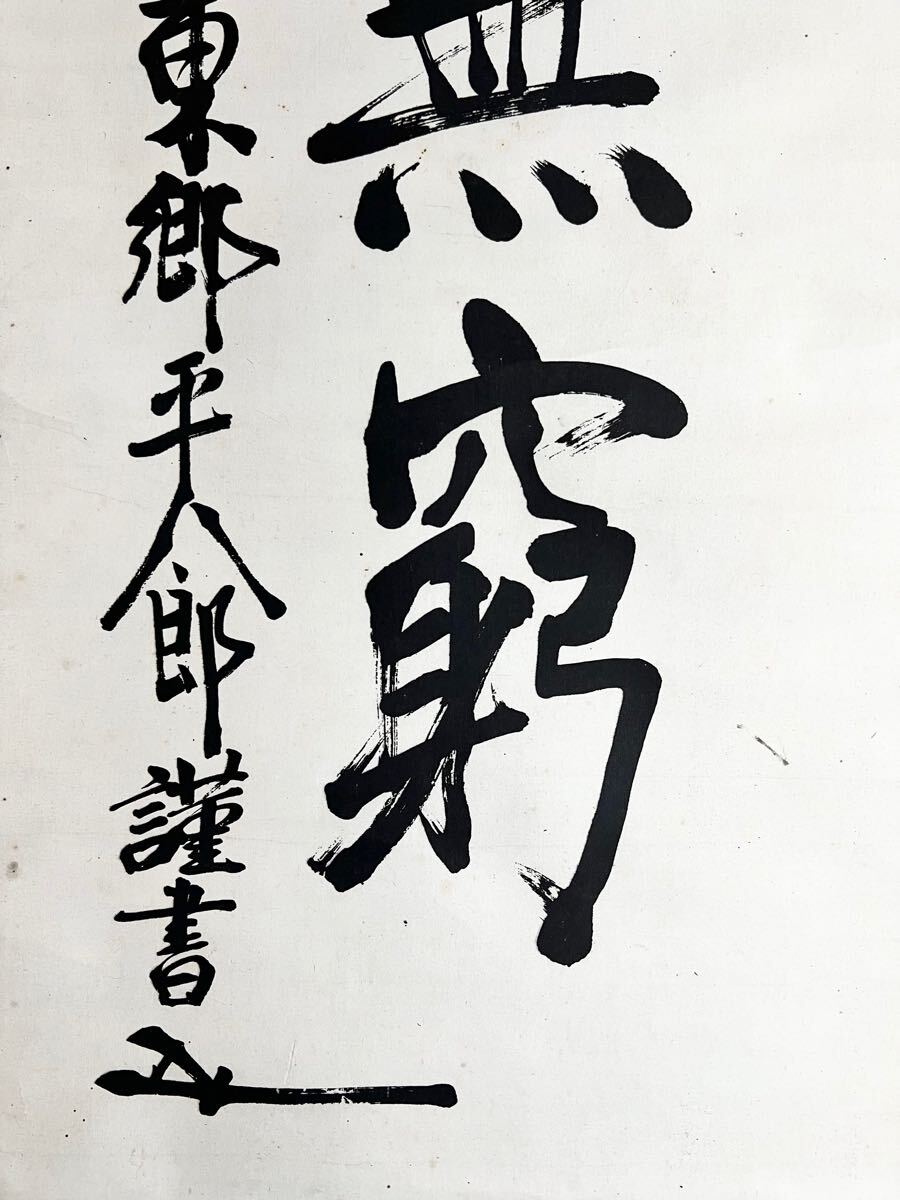 無窮
東郷平八郎謹書